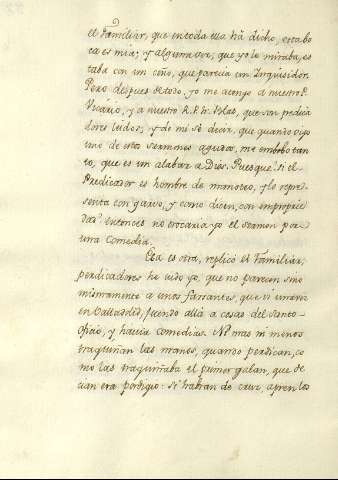 el Familiar, que en toda esa hà dicho, esta bo
ca es mia; y alguna vez, que yo le miraba, es
taba con un ceño, que parecia un Inquisidor.
Pero despues de todo, yo me atengo a nuestro P.
Vicario, y a nuestro R. P. Fr. Blas, que son pedica
dores leidos; y de mi sè decir, que quando oygo
uno de estos sermones agudos, me embobo tan
to, que es un alabar a Dios. Pues que? si el
Predicador es hombre de manoteo, y lo repre
senta con garvo, y como dicen, con empropie
dad? entonces no trocaria yo el sermon por
una Comedia.
Esa es otra, replicò el Familiar,
perdicadores he vido yo, que no parecen sino
mismamente a unos farsantes, que vi
en Valladolid, fuendo allà a cosas del Santo
Oficio, y hacia comedias. Ni mas ni menos
traquiñan las manos, quando perdican, co
mo las traquiñaba el primer galan, que de
cian era perdigio: si habran de cruz, apren los